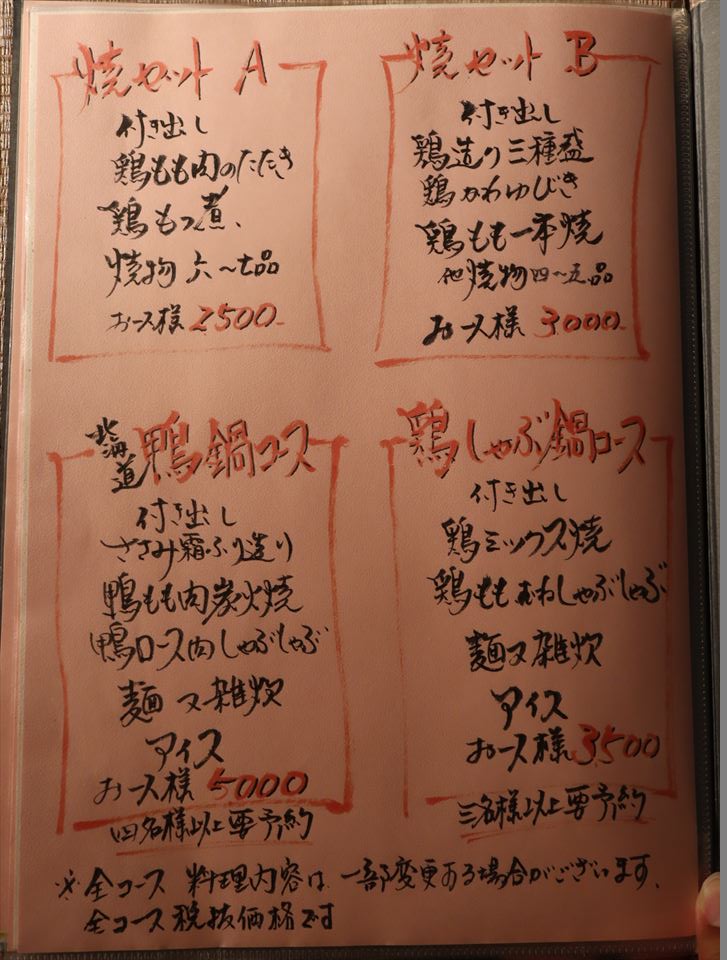 焼セット A
付き出し
鶏もも肉のたたき
鶏もつ煮、
焼物 六〜七品
お一人様 2500-
焼セット B
付き出し
鶏造り三種盛
鶏かわゆびき
鶏もも一本焼
他焼物四〜五品
お一人様 3000-
北海道鴨鍋コース
付き出し
ささみ霜ふり造り
鴨もも肉炭火焼
鴨ロース肉しゃぶしゃぶ
麺 又 雑炊
アイス
お一人様 5000
四名様以上要予約
鶏しゃぶ鍋コース
付き出し
鶏ミックス焼
鶏ももむねしゃぶしゃぶ
麺又雑炊
アイス
お一人様 3500
三名様以上要予約
※全コース 料理内容は、一部変更ある場合がございます。
全コース税抜価格です